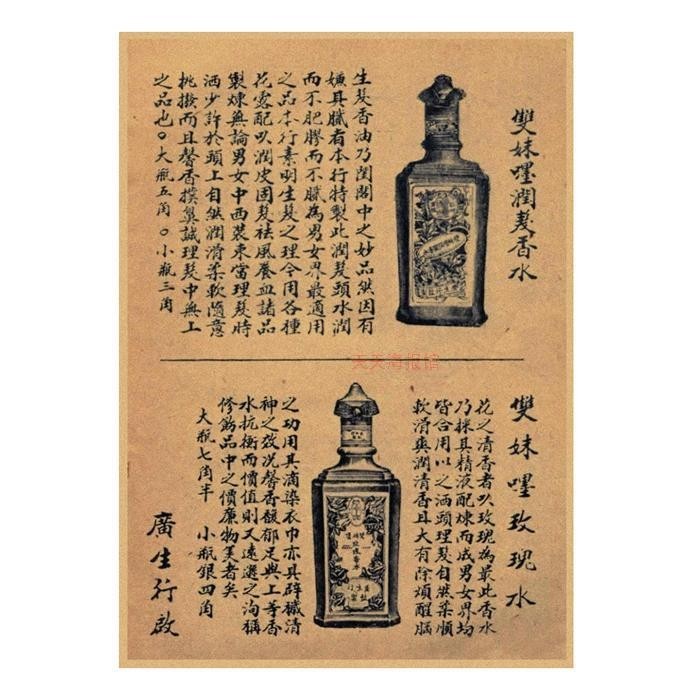 雙妹嚜潤髮香水
生髮香油乃閨閣中之妙品然因有
嫌其膩者本行特製此潤髮頭水潤
而不肥膠而不膩為男女界最適用
之品本行素明生髮之理今用各種
花露配以潤皮固髮祛風養血諸品
製煉無論男女中西裝束當理髮時
洒少許於頭上自然潤滑柔軟隨意
挑撥而且馨香撲鼻誠理髮中無上
之品也○大瓶五角○小瓶三角
天天海报馆
雙妹嚜玫瑰水
花之清香者以玫瑰為最此香水
乃採其精液配煉而成男女界均
皆合用以之洒頭理髮自然柔順
軟滑爽潤清香且大有除煩醒腦
之功用其滴染衣巾亦具辟穢清
神之效況馨香馥郁足與上等香
水抗衡而價值則又遠遜之洵稱
修飾品中之價廉物美者矣
大瓶七角半 小瓶銀四角
廣生行啟